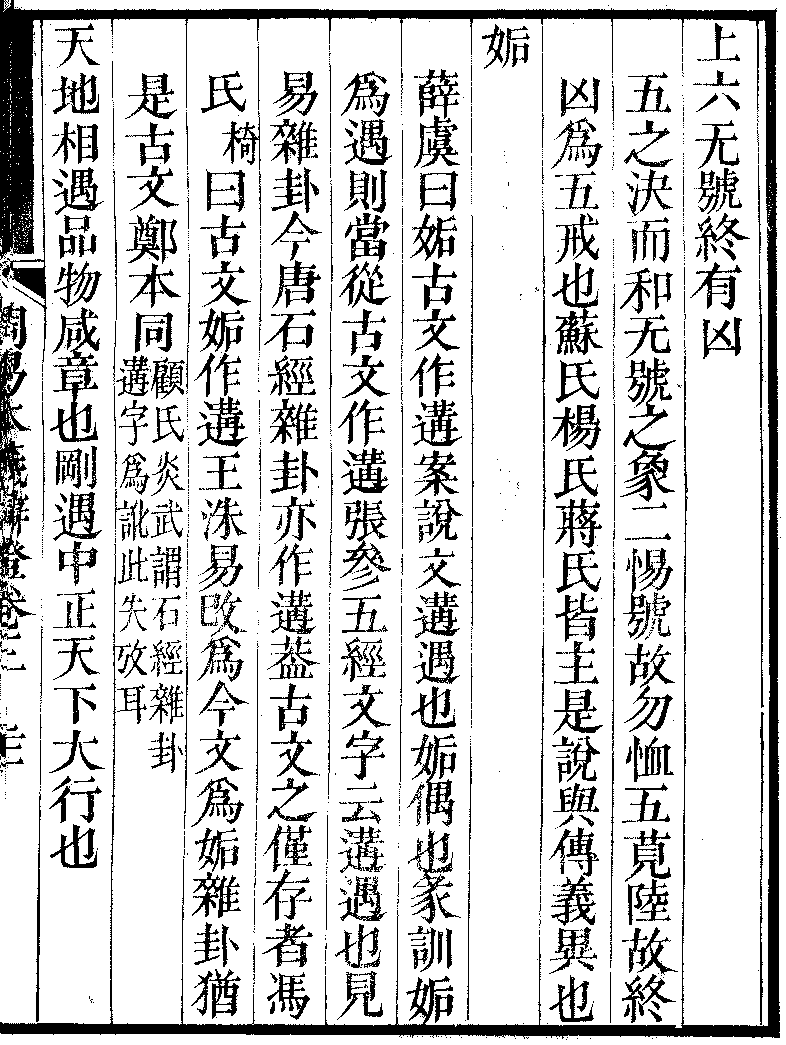 上六无號終有凶
五之決而和无號之象二惕號故勿恤五莧陸故終
凶爲五戒也蘇氏楊氏蔣氏皆主是說與傳義異也
姤
薛虞曰姤古文作遘案說文遘遇也姤偶也彖訓姤
爲遇則當從古文作遘張參五經文字云遘遇也見
易雜卦今唐石經雜卦亦作遘葢古文之僅存者馮
氏椅曰古文姤作遘王洙易改爲今文爲姤雜卦猶
是古文鄭本同顧氏炎武謂石經雜卦遘字爲訛此失攷耳
天地相遇品物咸章也剛遇中正天下大行也
周易本義辨證卷二